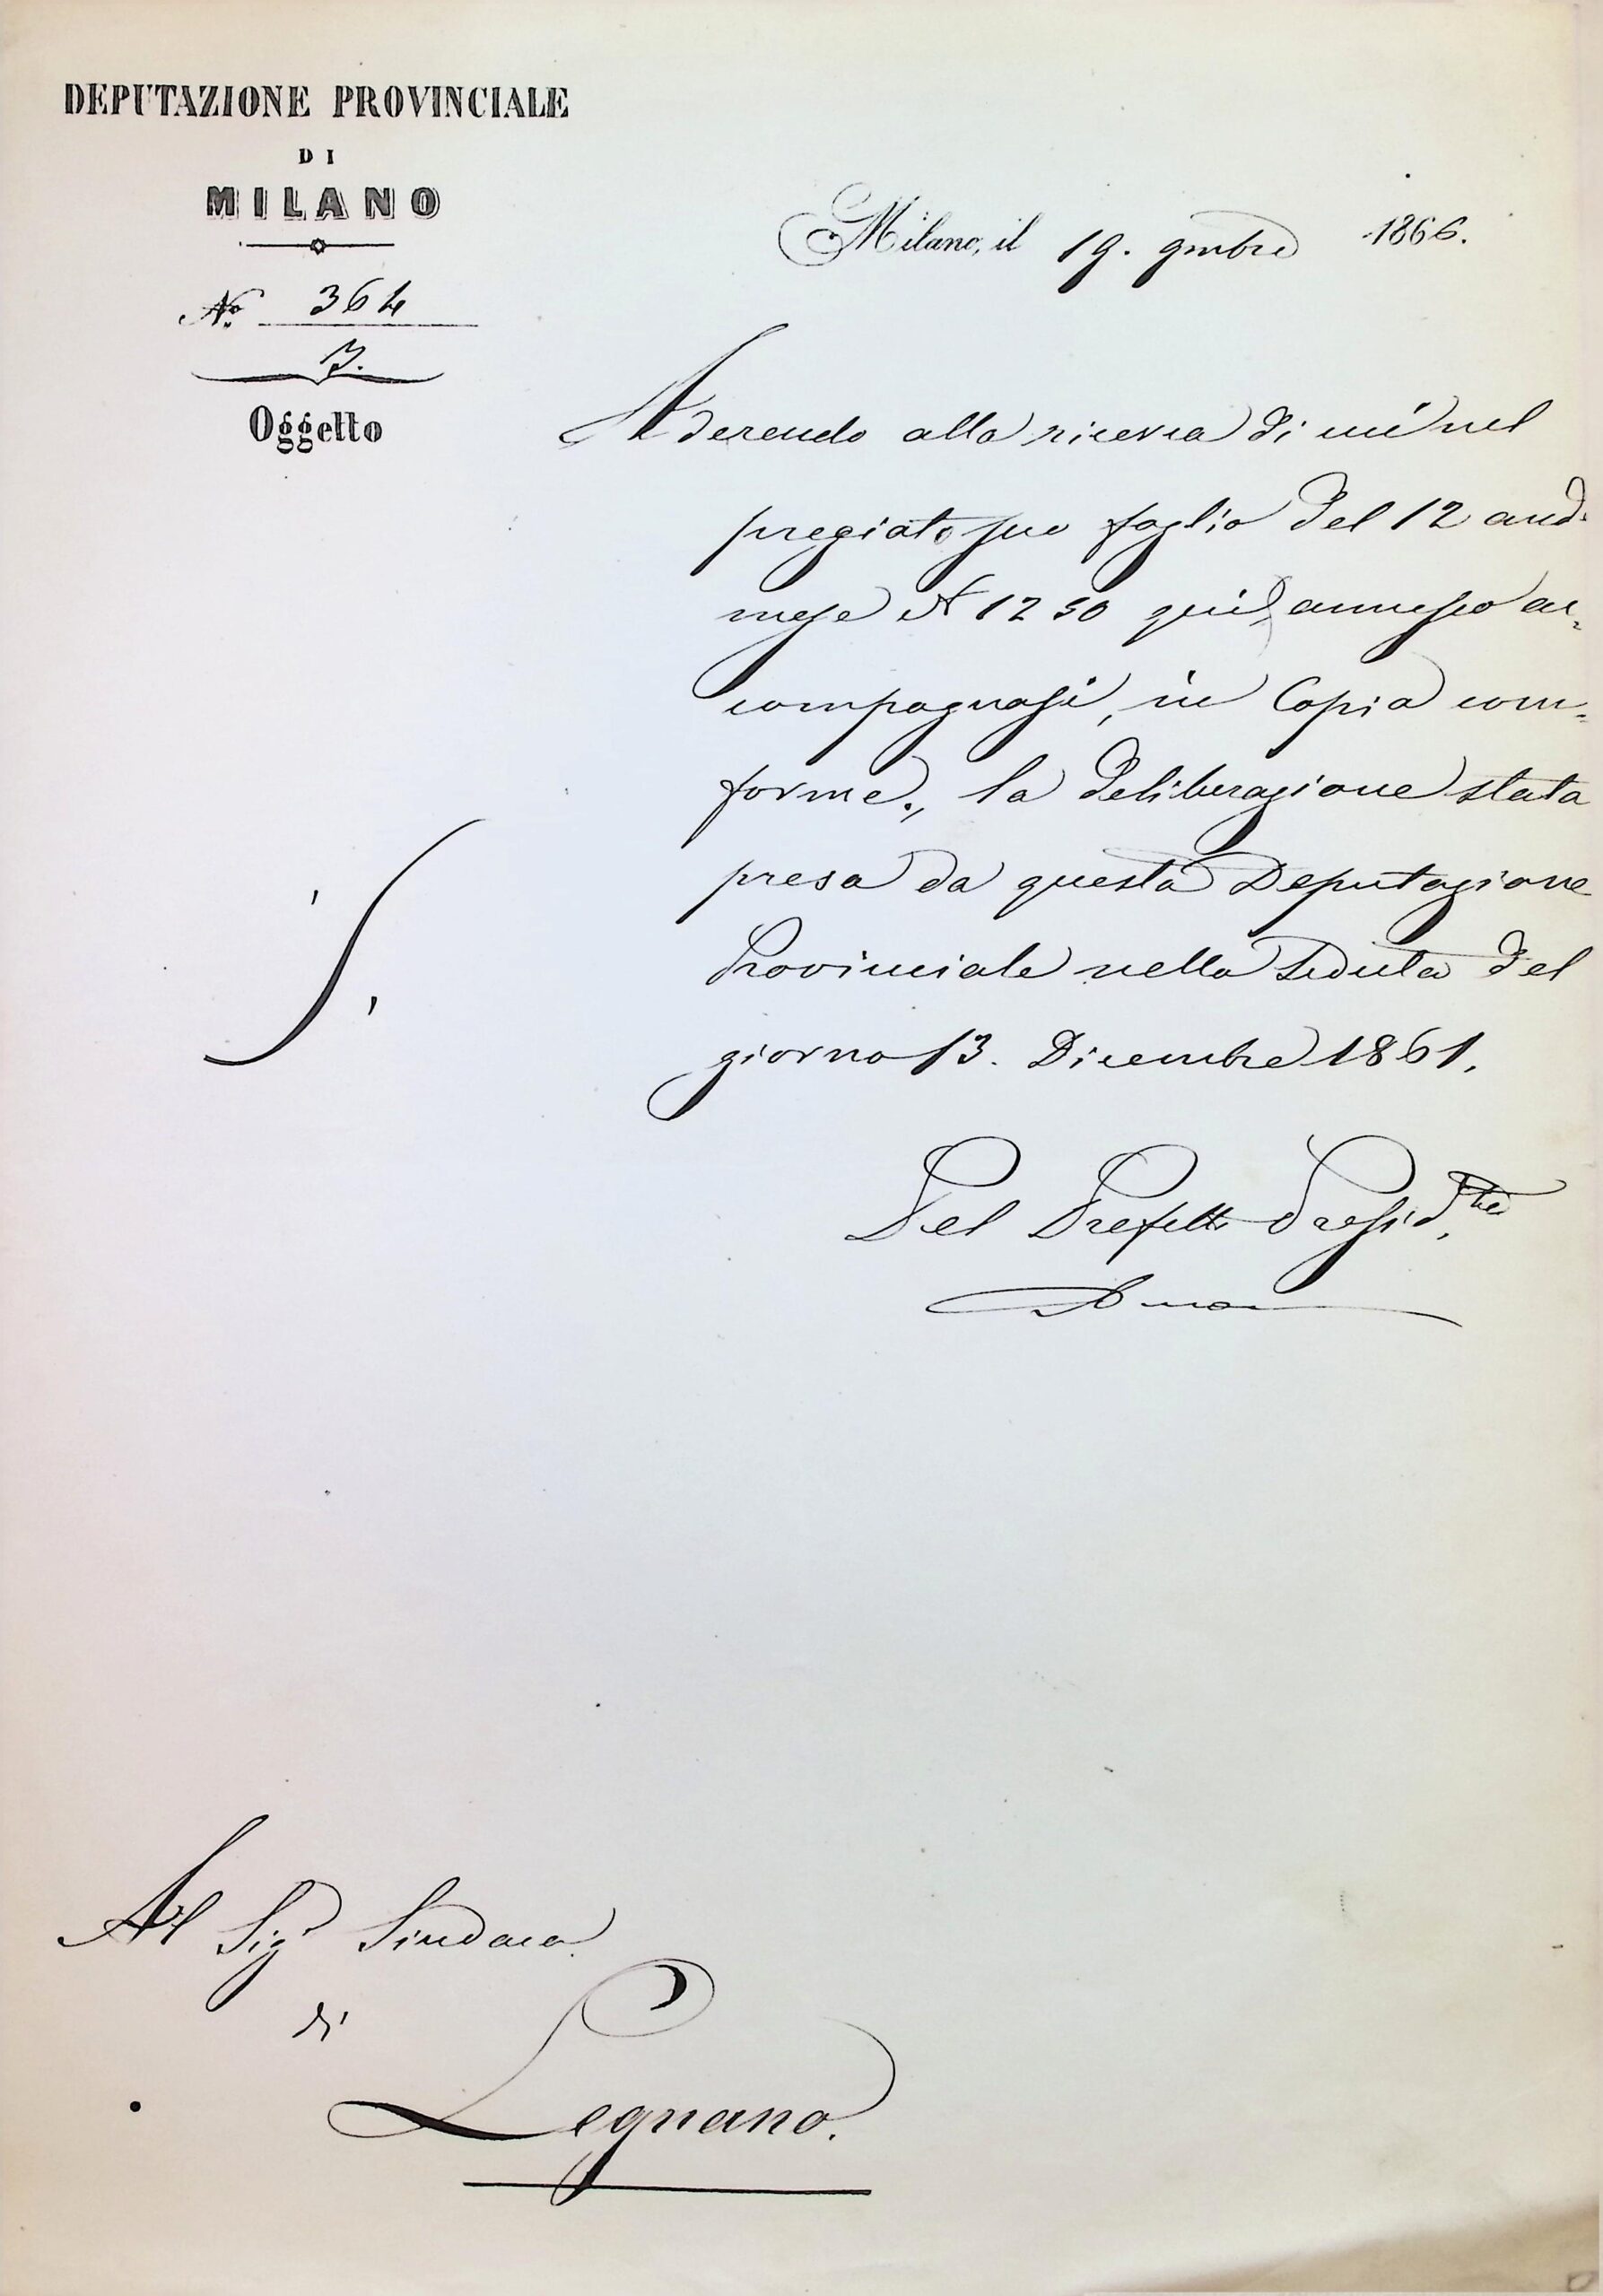 DEPUTAZIONE PROVINCIALE
DI
MILANO
Milano, il 19. 9mbre 1866.
No. 364
7.
Oggetto
Aderendo alla ricerca di cui nel
pregiato suo foglio del 12 and.
mese N 1250 qui annesso ac-
compagnasi, in Copia con-
forme, la deliberazione stata
presa da questa Deputazione
Provinciale nella Seduta del
giorno 13. Dicembre 1861.
Pel Prefetto Presid.te
Al Sigr Sindaco
di
Legnano.